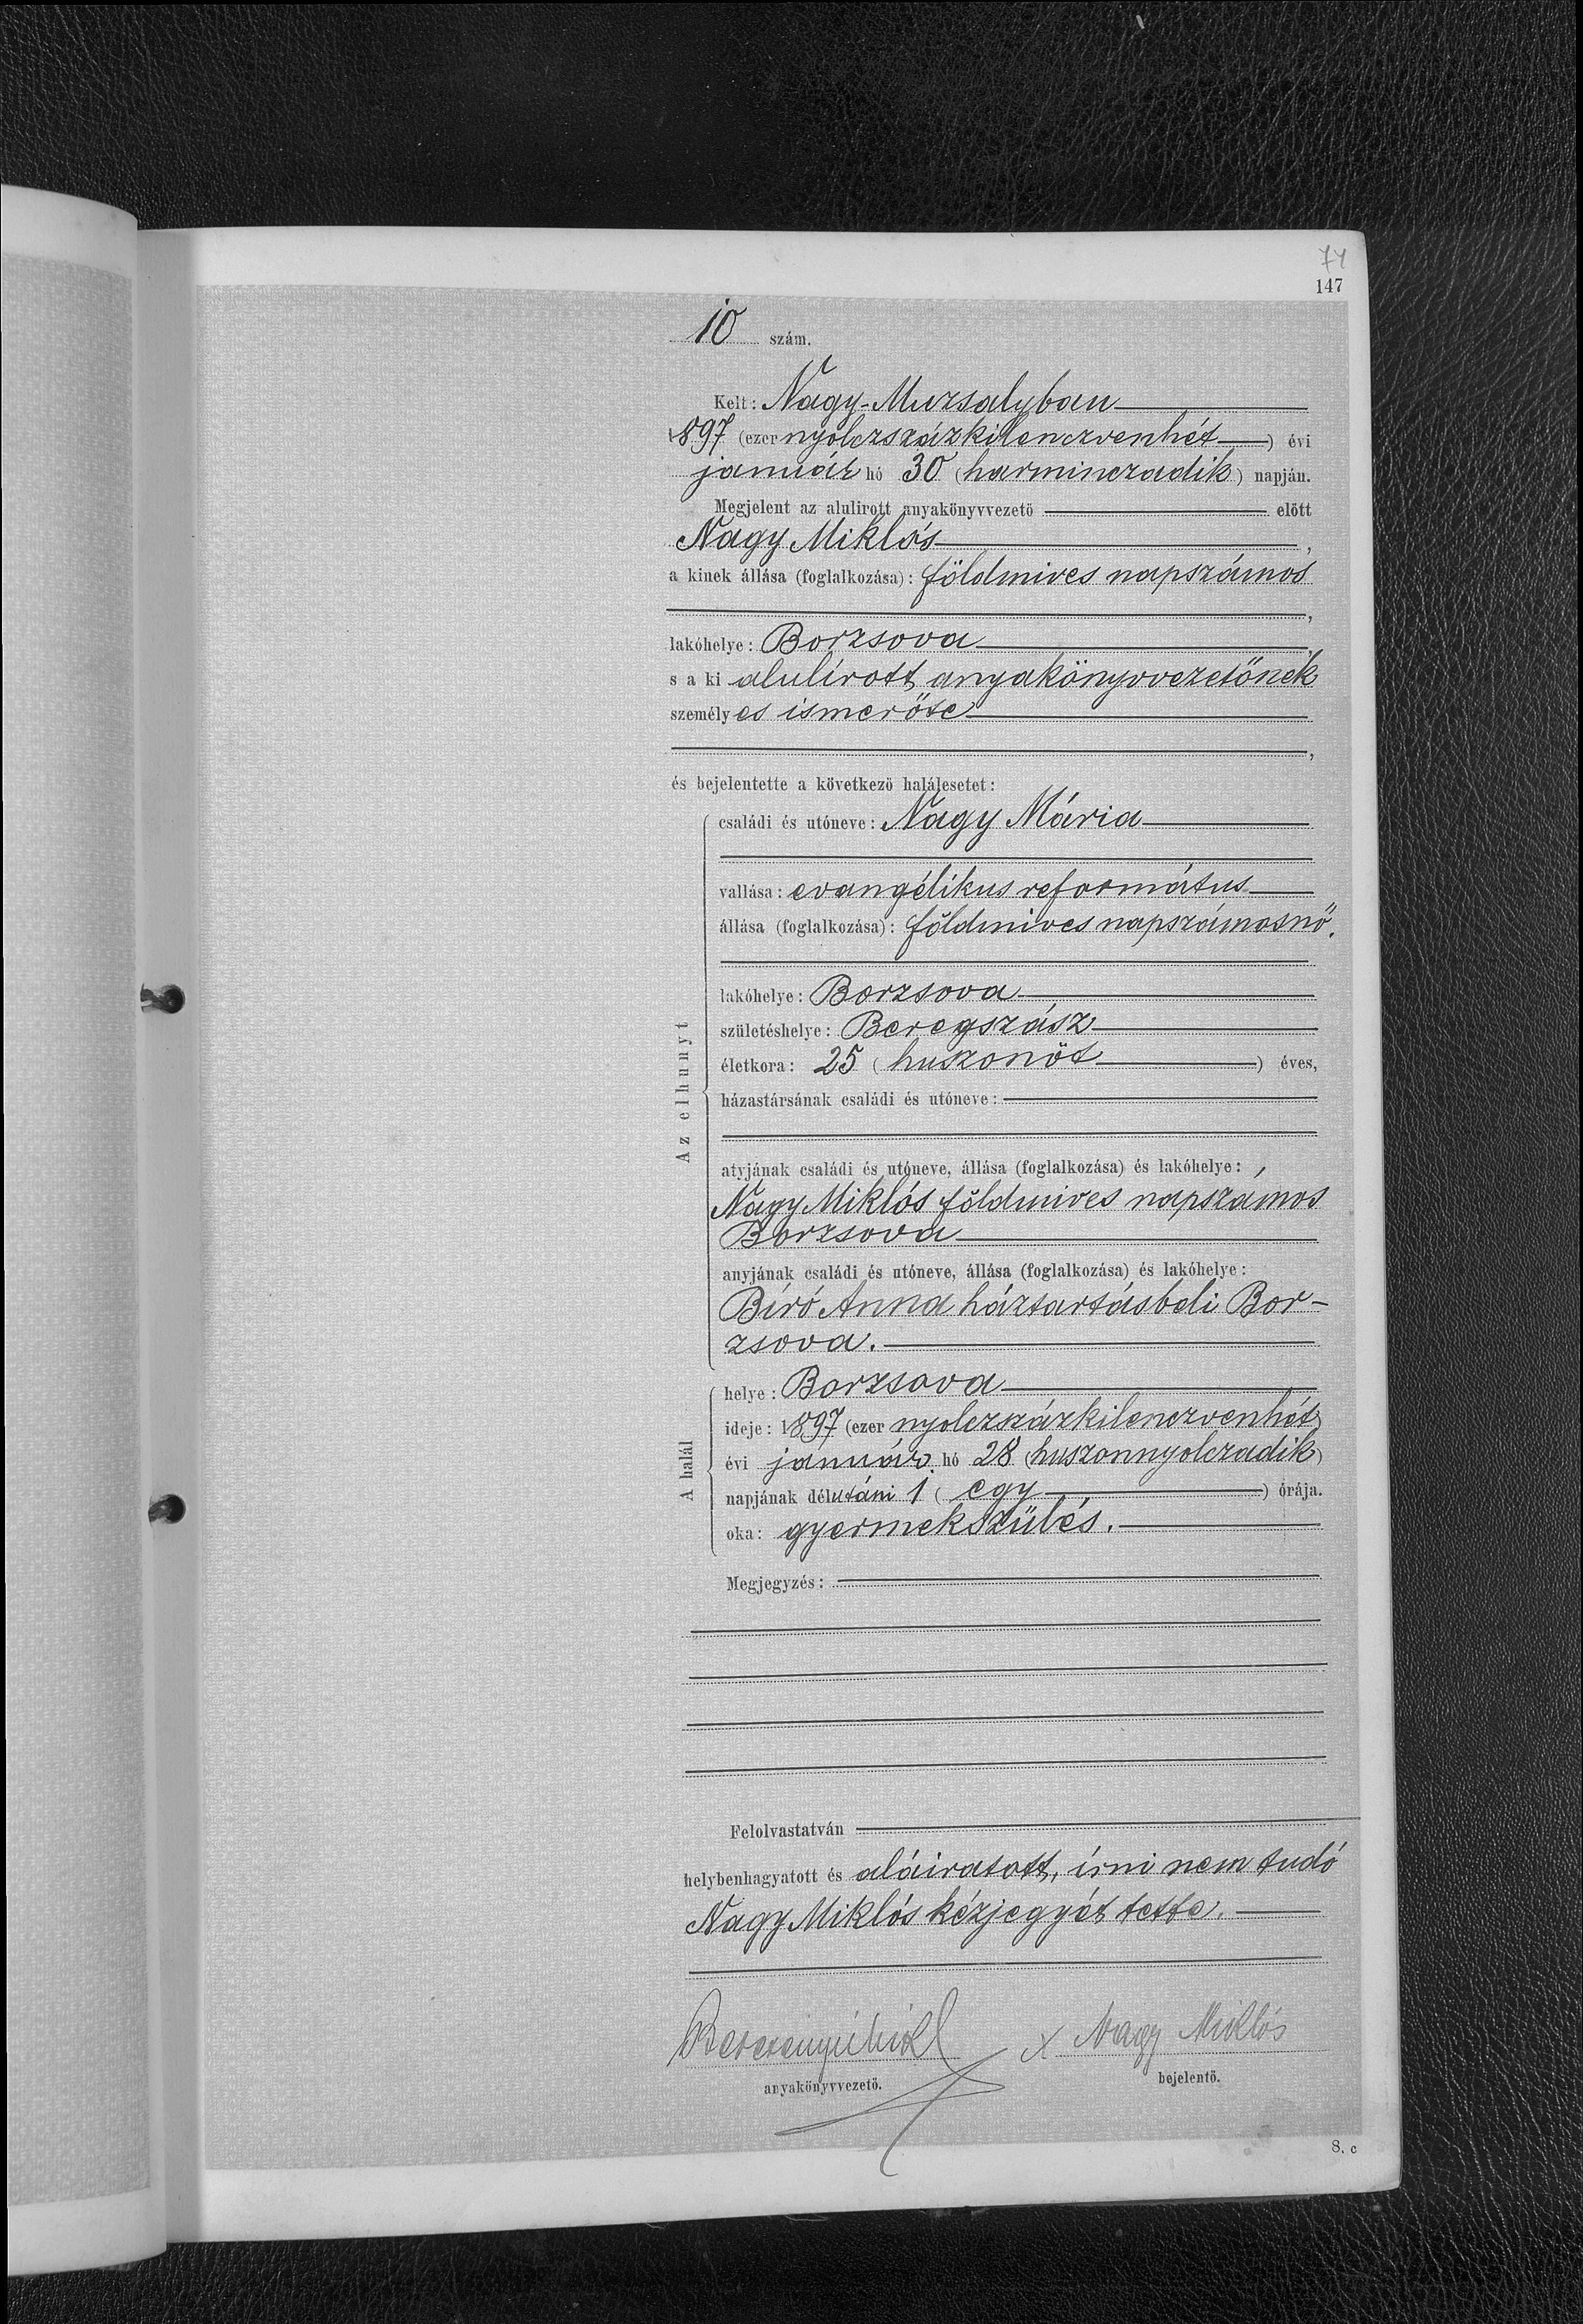 74
147
10 szám.
Kelt: Nagy-Muzsalyban
1897 (ezer nyolczszázkilenczvenhét) évi
január hó 30 (harminczadik) napján.
Megjelent az alulirott anyakönyvvezető előtt
Nagy Miklós,
a kinek állása (foglalkozása): földmives napszámos
,
lakóhelye: Borzsova,
s a ki alulírott anyakönyvvezetőnek
személyes ismerőse
,
és bejelentette a következő halálesetet:
Az elhunyt
családi és utóneve: Nagy Mária
vallása: evangélikus református
állása (foglalkozása): földmives napszámosnő.
lakóhelye: Borzsova
születéshelye: Beregszász
életkora: 25 (huszonöt) éves,
házastársának családi és utóneve:
atyjának családi és utóneve, állása (foglalkozása) és lakóhelye:
Nagy Miklós földmives napszámos
Borzsova
anyjának családi és utóneve, állása (foglalkozása) és lakóhelye:
Bíró Anna háztartásbeli Bor-
zsova.
A halál
helye: Borzsova
ideje: 1897 (ezer nyolczszázkilenczvenhét)
évi január hó 28 (huszonnyolczadik)
napjának délutáni 1 (egy) órája.
oka: gyermekszülés.
Megjegyzés:
Felolvastatván
helybenhagyatott és aláiratott, írni nem tudó
Nagy Miklós kézjegyét tette.
x Nagy Miklós
anyakönyvvezető. bejelentő.
8. c